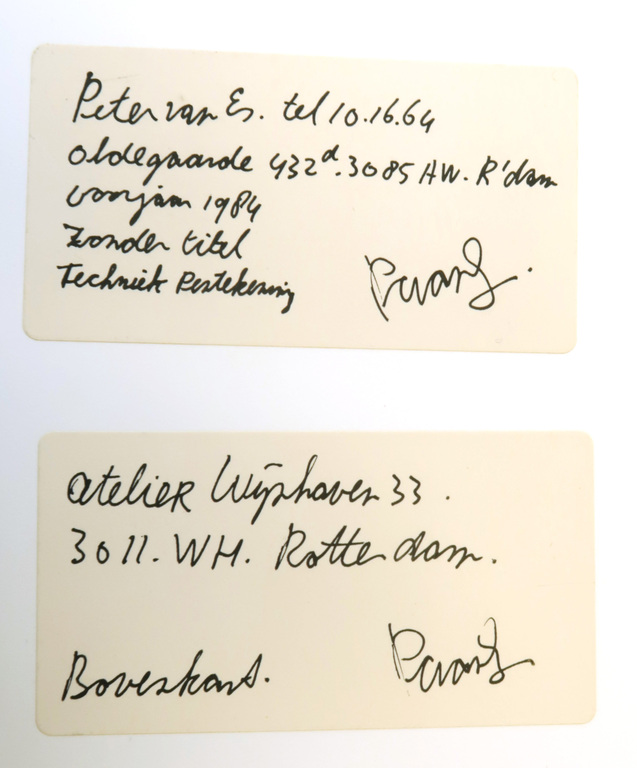 Peter van Es. tel 10.16.64
Oldegaarde 432d. 3085 HW. R'dam
voorjaar 1984
Zonder titel
Techniek Pentekening
PvanEs.
atelier Wijnhaven 33.
3011. WH. Rotterdam.
Bovenkant.
PvanEs